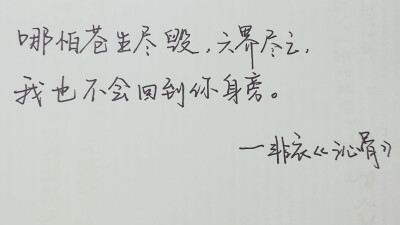 哪怕苍生尽毁,六界尽亡,
我也不会回到你身旁。
—非衣《沁骨》